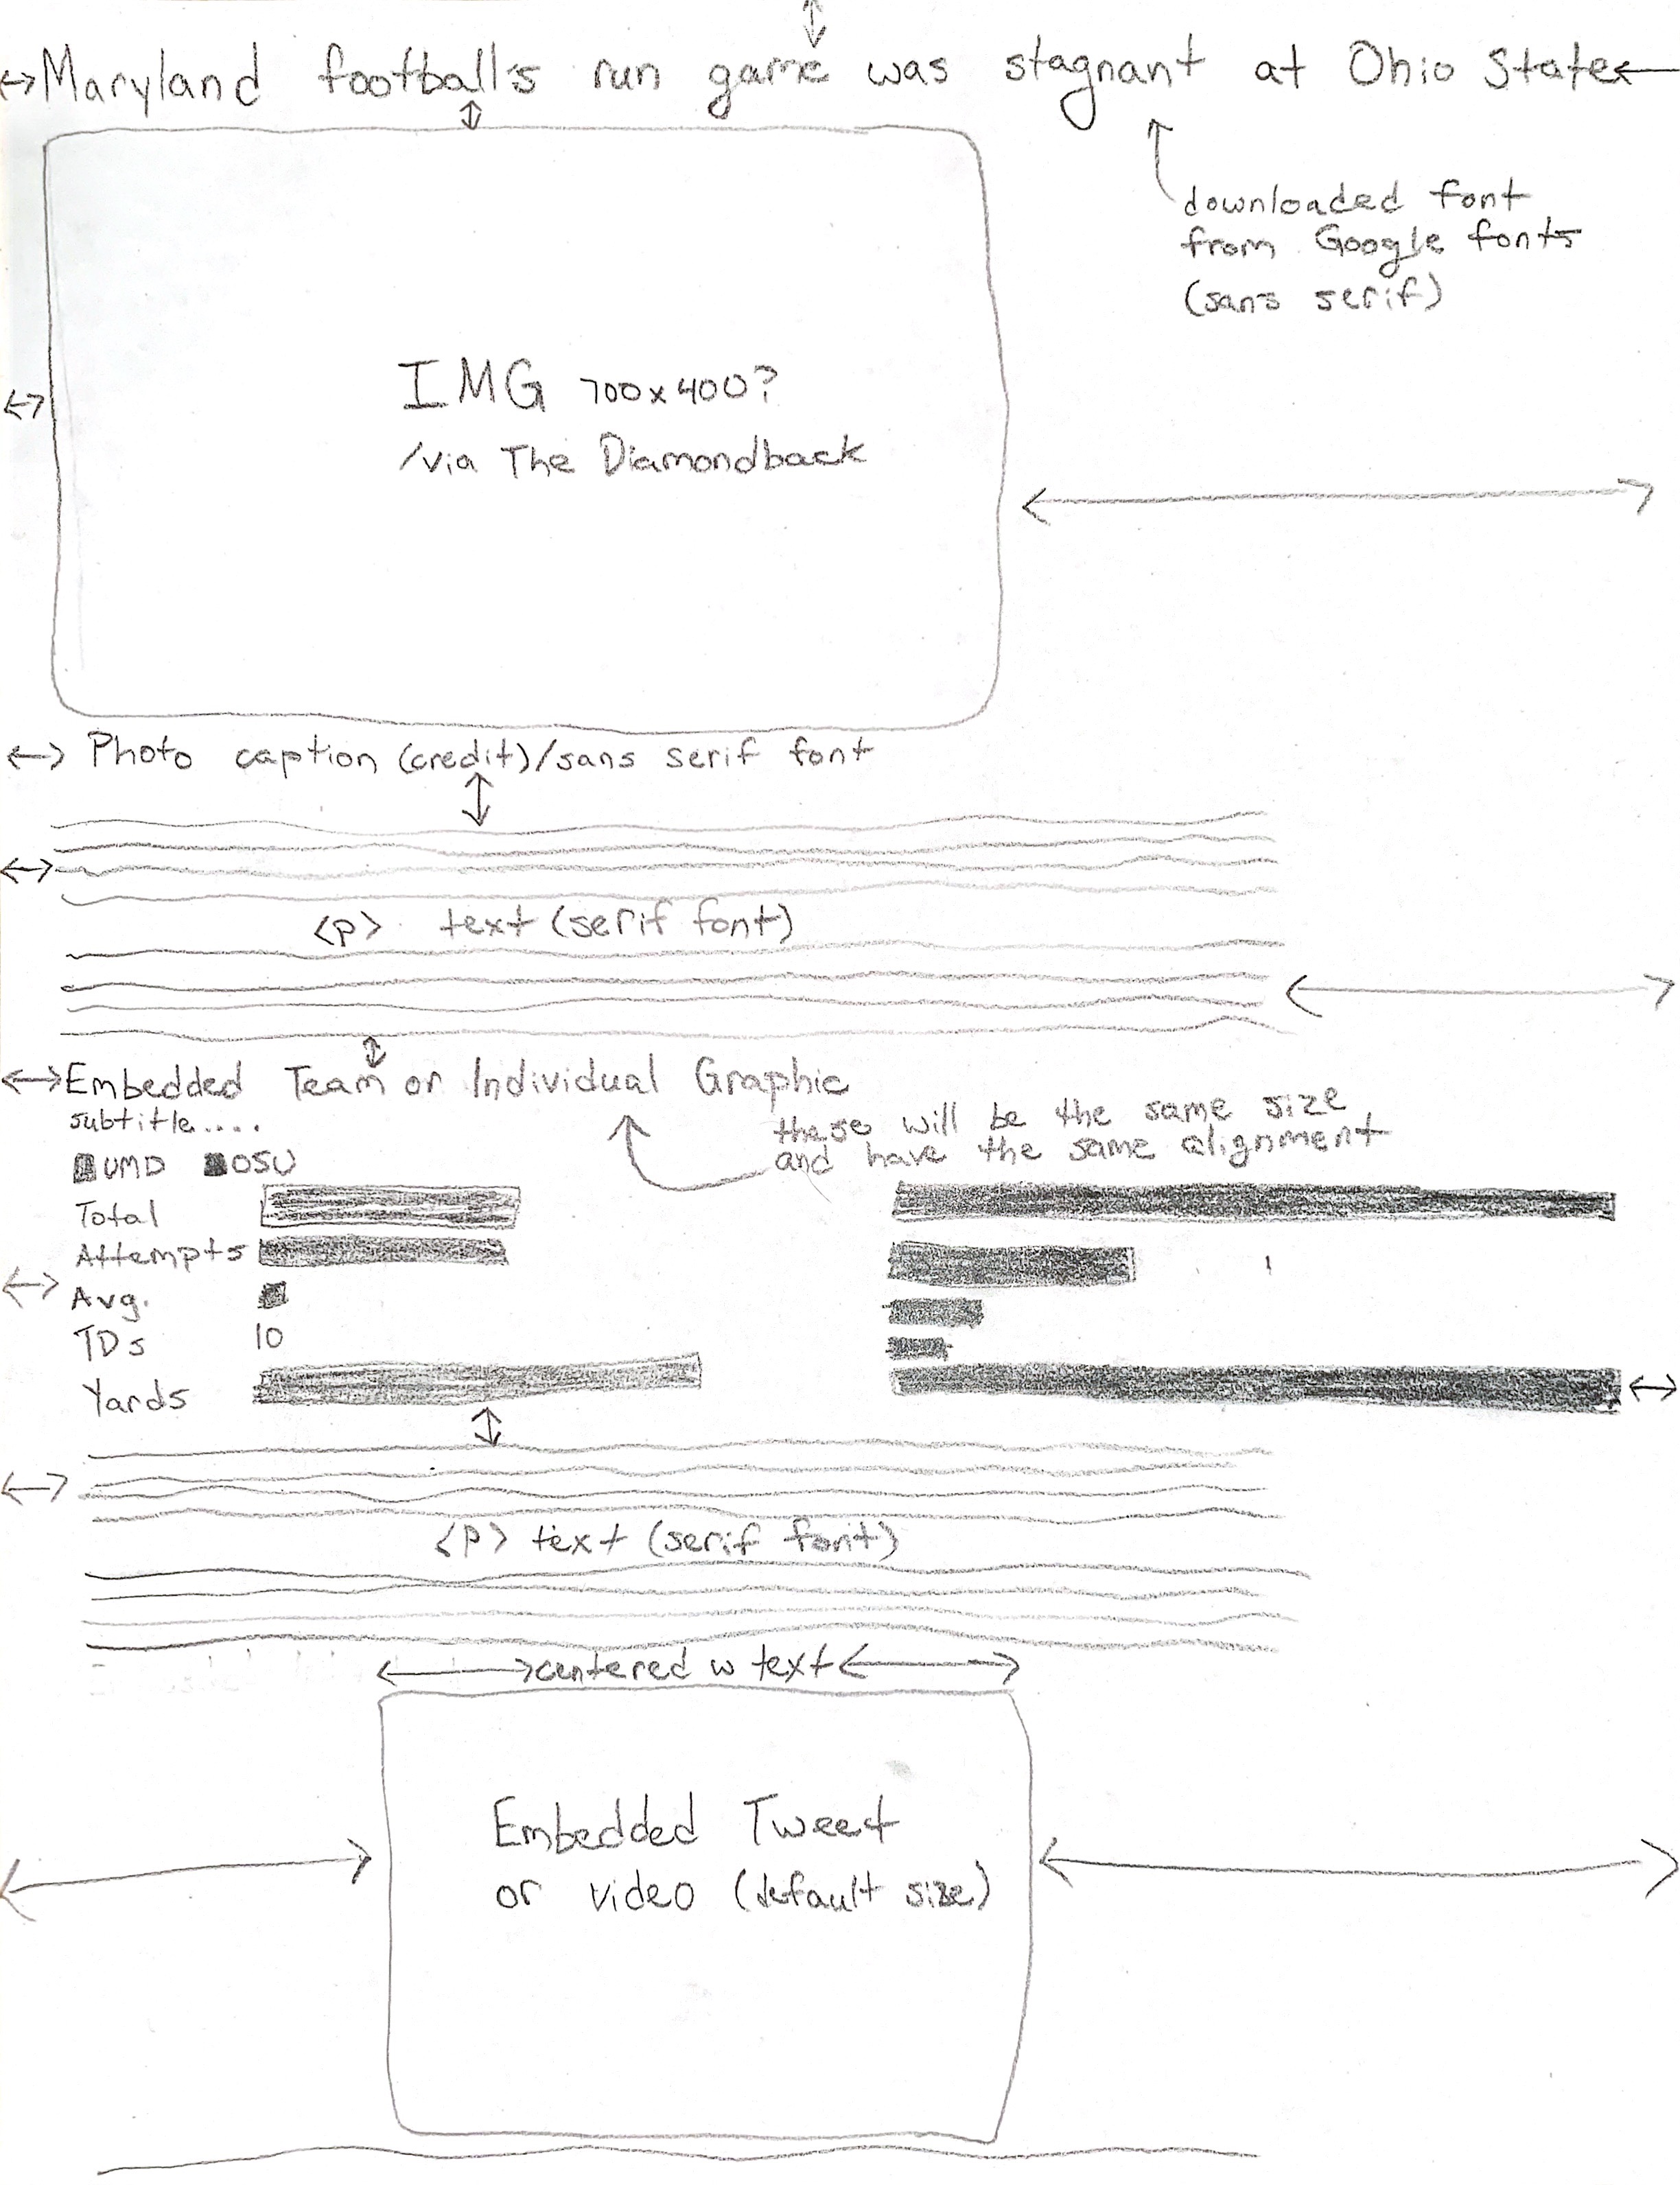 Maryland football's run game was stagnant at Ohio State
downloaded font
from Google fonts
(sans serif)
IMG 700x400?
/via The Diamondback
Photo caption (credit)/sans serif font
<p> text (serif font)
Embedded Team or Individual Graphic
subtitle....
these will be the same size
and have the same alignment
UMD OSU
Total
Attempts
Avg.
TDs 10
Yards
<p> text (serif font)
centered w text
Embedded Tweet
or video (default size)